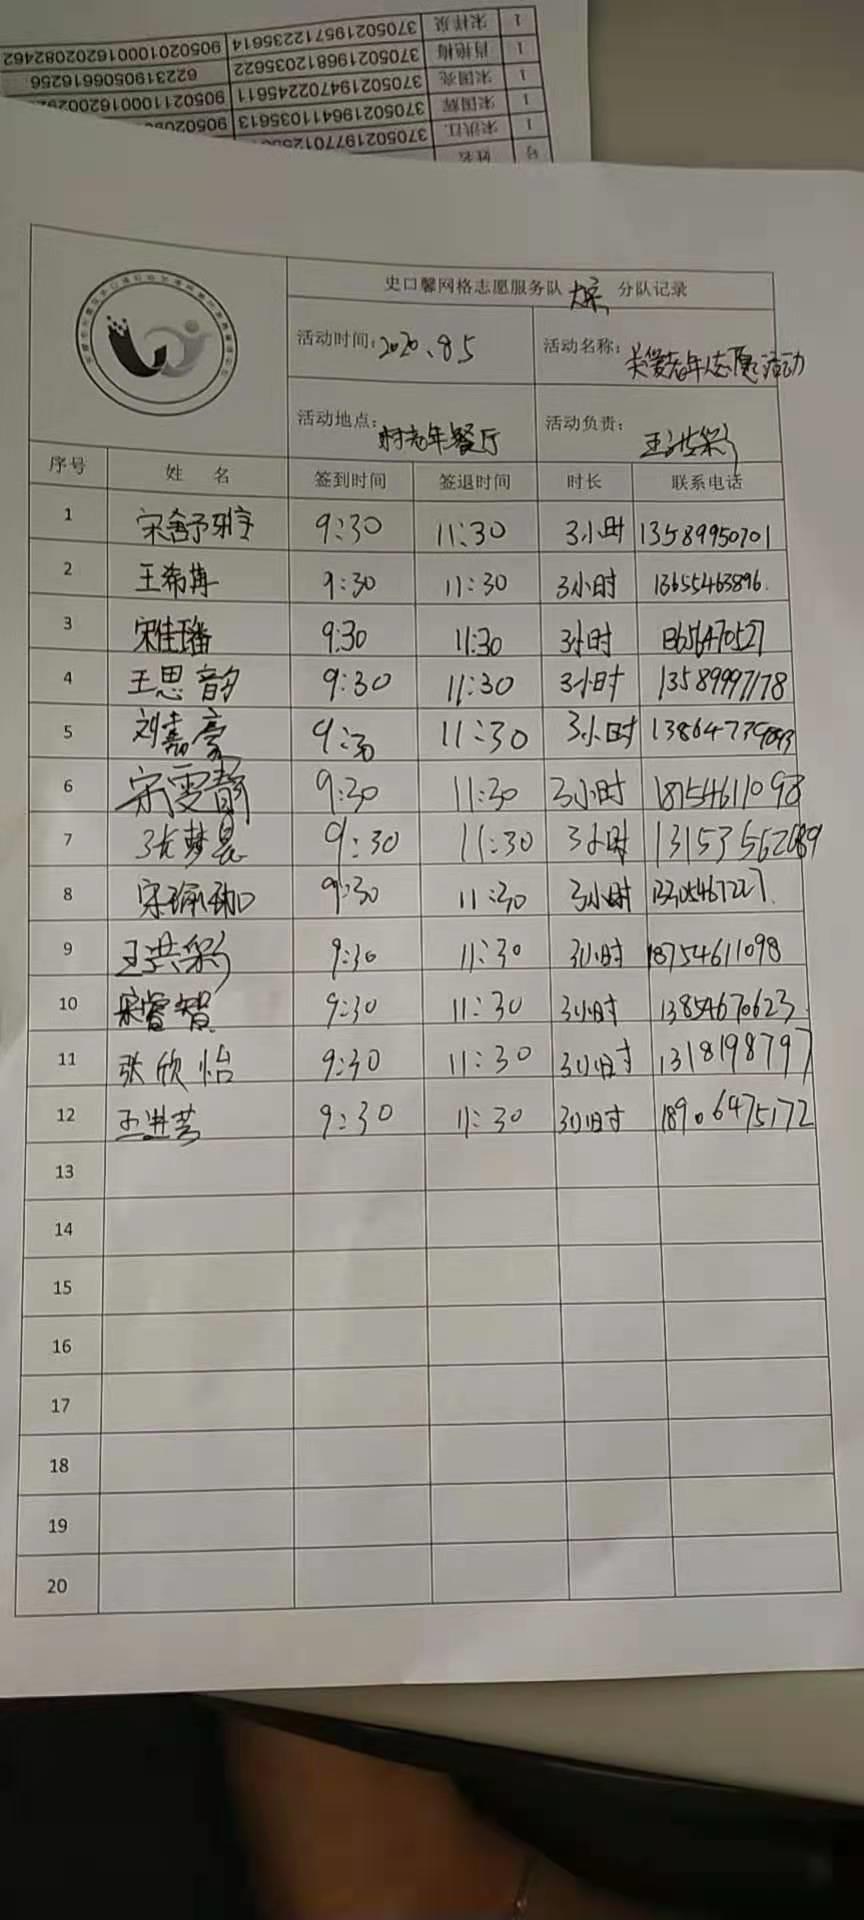 史口馨网格志愿服务队 大宋 分队记录
活动时间:2020.8.5 活动名称:关爱老年人志愿活动
活动地点:村老年餐厅 活动负责:王洪彩
序号 姓 名 签到时间 签退时间 时长 联系电话
1 宋舒雅 9:30 11:30 3小时 13589950701
2 王希苒 9:30 11:30 3小时 13655463896.
3 宋佳璠 9:30 11:30 3小时
4 王思韵 9:30 11:30 3小时 13589997178
5 刘嘉豪 9:30 11:30 3小时
6 宋雯静 9:30 11:30 3小时 18754611098
7 张梦晨 9:30 11:30 3小时 13153562089
8 宋瑜珈 9:30 11:30 3小时
9 王洪彩 9:30 11:30 3小时 18754611098
10 宋睿智 9:30 11:30 3小时 13854670623
11 张欣怡 9:30 11:30 3小时 1318198797
12 王进芳 9:30 11:30 3小时 18906475172
13
14
15
16
17
18
19
20